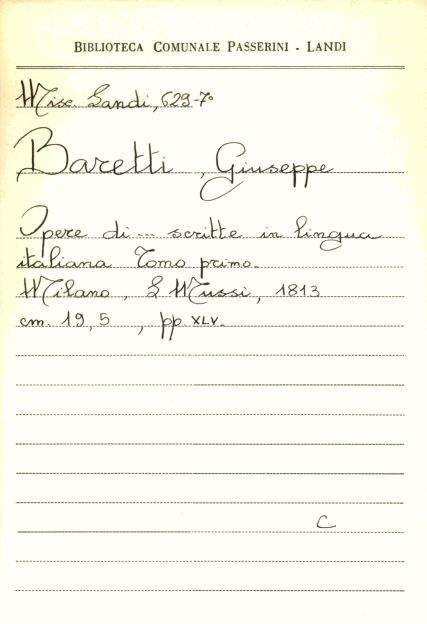 BIBLIOTECA COMUNALE PASSERINI - LANDI
Misc. Landi, 629-7°
Baretti, Giuseppe
Opere di --- scritte in lingua
italiana Tomo primo.
Milano, L Mussi, 1813
cm. 19,5, pp. XLV.
C